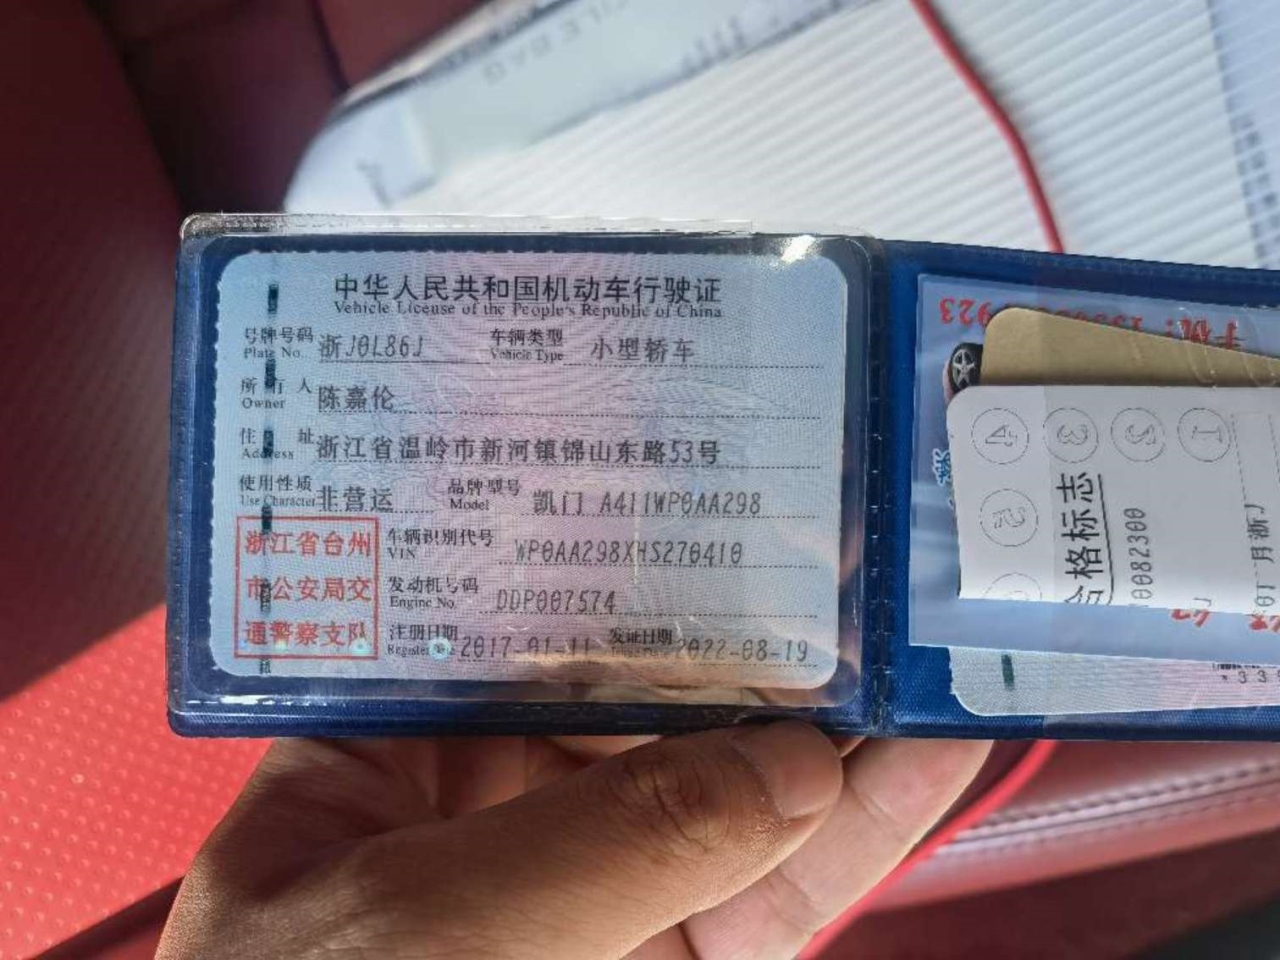 中华人民共和国机动车行驶证
Vehicle License of the People's Republic of China
号牌号码 浙J0L86J 车辆类型 小型轿车
Plate No. Vehicle Type
所有人 陈嘉伦
Owner
住址 浙江省温岭市新河镇锦山东路53号
Address
使用性质 非营运 品牌型号 凯门 A411WP0AA298
Use Character Model
浙江省台州
市公安局交
通警察支队
车辆识别代号 WP0AA298XHS270410
VIN
发动机号码 DDP007574
Engine No.
注册日期 2017-01-11 发证日期 2022-08-19
Register Date Issue Date
手机:
923
1
2
3
4
5
合格标志
0082300